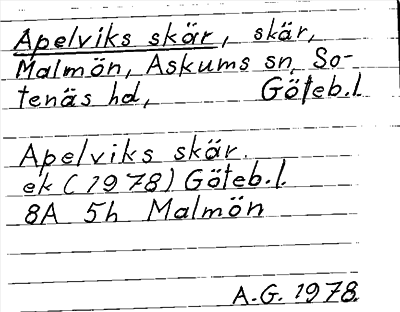 Apelviks skär, skär,
Malmön, Askums sn, So-
tenäs hd, Göteb.l.
Apelviks skär.
ek (1978) Göteb.l.
8A 5h Malmön
A.G. 1978.